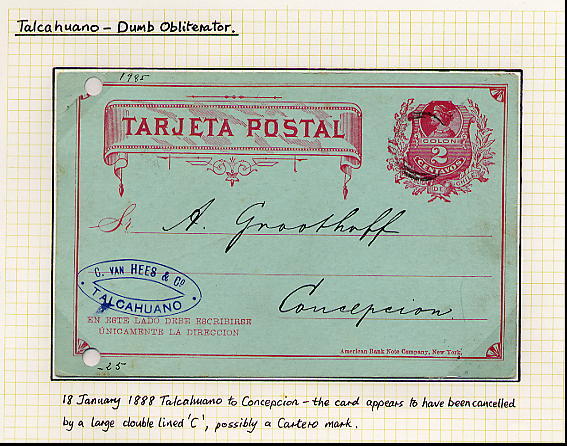 Talcahuano - Dumb Obliterator.
1985
TARJETA POSTAL
COLON
2
CENTAVOS
DE
Sr A. Groothoff
C. VAN HEES & Co
TALCAHUANO
Concepcion.
EN ESTE LADO DEBE ESCRIBIRSE
ÚNICAMENTE LA DIRECCION
American Bank Note Company, New York.
-25
18 January 1888 Talcahuano to Concepcion - the card appears to have been cancelled
by a large double lined 'C', possibly a Cartero mark.